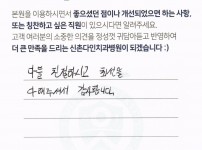 본원을 이용하시면서 좋으셨던 점이나 개선되었으면 하는 사항,
또는 칭찬하고 싶은 직원이 있으시다면 알려주세요.
고객 여러분의 소중한 의견을 정성껏 귀담아듣고 반영하여
더 큰 만족을 드리는 신촌다인치과병원이 되겠습니다 :)
다들 친절하시고 최선을
다해주셔서 감사합니다.